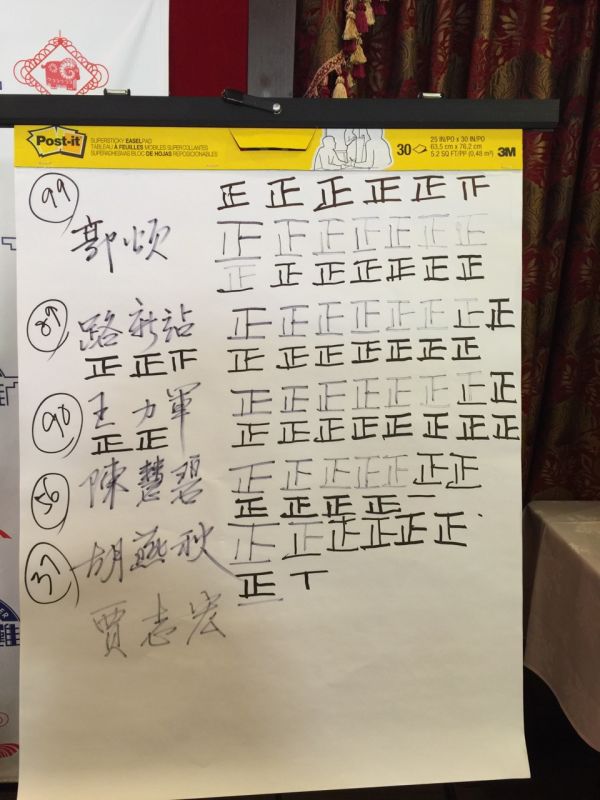 Post-it SUPERSTICKY EASEL PAD
TABLEAU À FEUILLES MOBILES SUPERCOLLANTES
SUPERADHESIVAS BLOC DE HOJAS REPOSICIONABLES
30
25 IN/PO x 30 IN/PO
63,5 cm x 76,2 cm
5.2 SQ FT/PP (0,48 m²)
3M
99 正 正 正 正 正 下
郭颂 正 正 正 正 正 正 正
正 正 正 正 正 正 正
89 路新站 正 正 正 正 正 正 正 正
正 正 下 正 正 正 正 正 正 正
90 王力軍 正 正 正 正 正 正 正 正
正 正 正 正 正 正 正 正 正 正
56 陳慧碧 正 正 正 正 正 正 正
正 正 正 正 一
37 胡燕秋 正 正 正 正 正 正
正 丅
賈志宏